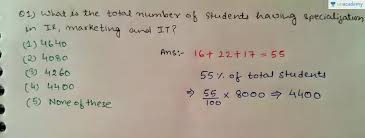 unacademy
Q1) What is the total number of students having specialization
in IR, marketing and IT?
(1) 4640
(2) 4080
(3) 4260
(4) 4400
(5) None of these
Ans:- 16 + 22 + 17 = 55
55 % of total students
⇒ 55/100 × 8000 ⇒ 4400